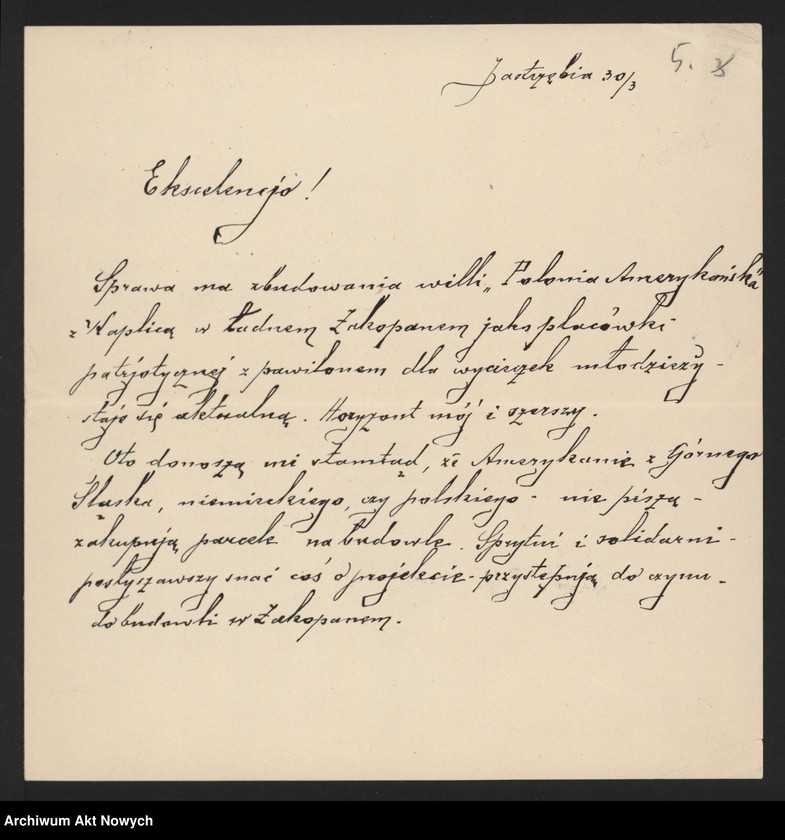 Jastrzębia 30/3
5.
Ekscelencjo!
Sprawa ma zbudowania willi „Polonia Amerykańska"
z Kaplicą w ładnem Zakopanem jako placówki
patrjotycznej z pawilonem dla wycieczek młodzieży -
staje się aktualną. Horyzont mój i szerszy.
Oto donoszą mi stamtąd, że Amerykanie z Górnego
Śląska, niemieckiego, czy polskiego - nie piszą -
zakupują parcele na budowle. Sprytni i solidarni -
posłyszawszy snać coś o projekcie - przystępują do czynu -
do budowli w Zakopanem.
Archiwum Akt Nowych